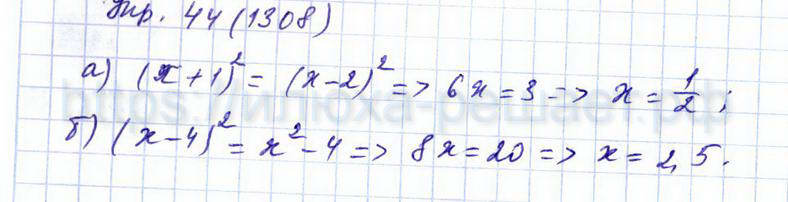 Упр. 44 (1308)
а) (x+1)² = (x-2)² => 6x = 3 => x = 1/2;
б) (x-4)² = x² - 4 => 8x = 20 => x = 2,5.
https://илюха-решает.рф